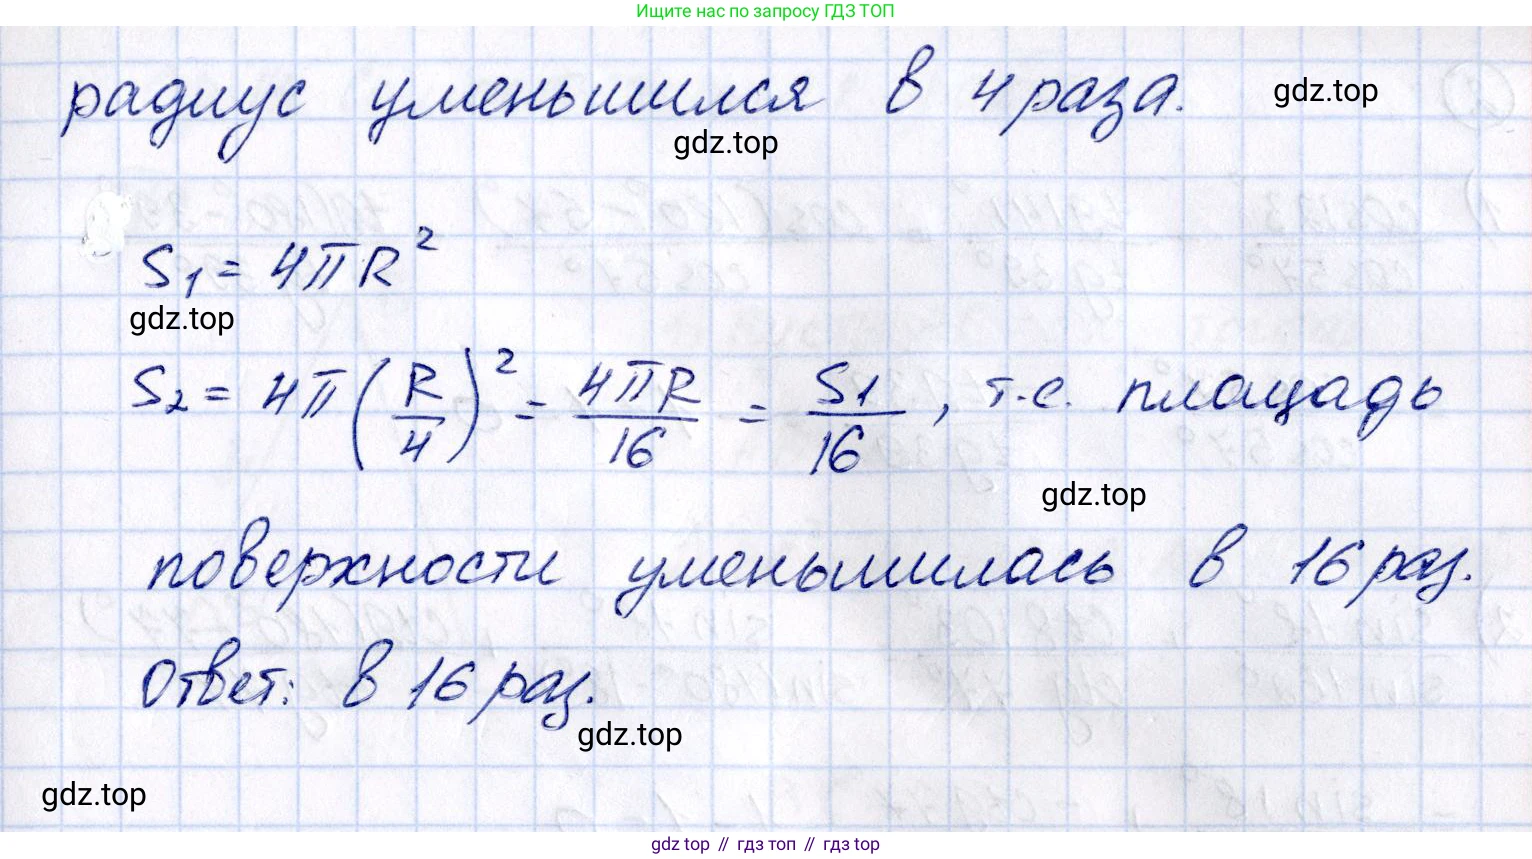 Ищите нас по запросу ГДЗ ТОП
радиус уменьшился в 4 раза.
gdz.top
gdz.top
S₁ = 4πR²
gdz.top
S₂ = 4π(R/4)² = 4πR/16 = S1/16, т.е. площадь
gdz.top
поверхности уменьшилась в 16 раз.
Ответ: в 16 раз.
gdz.top
gdz.top
gdz top // гдз топ // gdz top